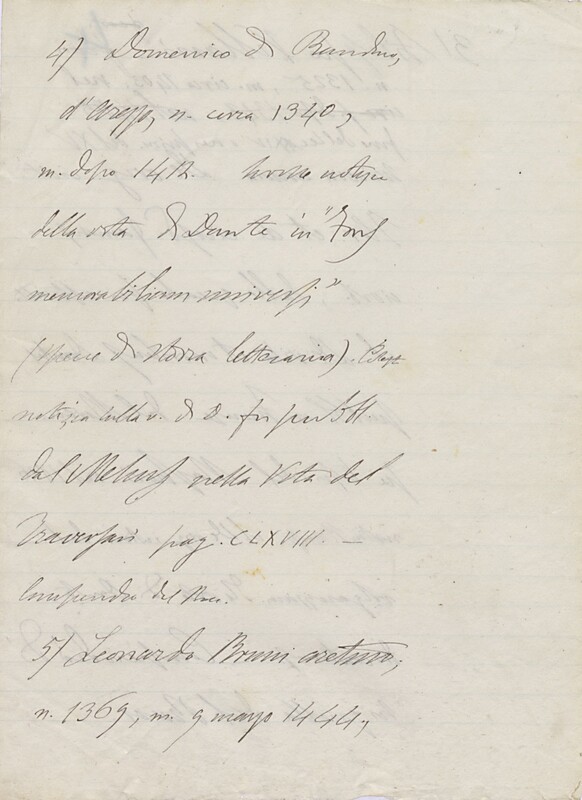 4) Domenico di Bandino,
d'Arezzo, n. circa 1340,
m. dopo 1412. Scrisse notizie
della vita di Dante in "Fons
memorabilium universi"
(specie di storia letteraria).
notizia sulla v. di D. fu pubbl.
dal Mehus nella Vita del
Traversari pag. CLXVIII. —
Compendio del Bocc.
5) Leonardo Bruni aretino,
n. 1369, m. 9 marzo 1444,